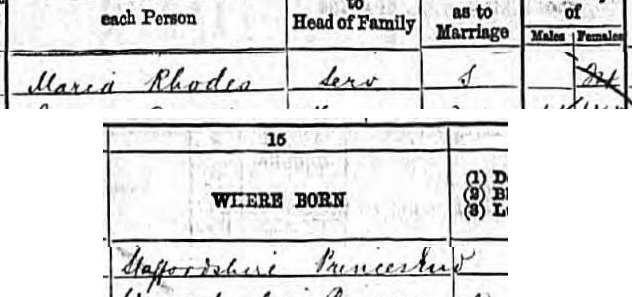 to
each Person Head of Family as to of
Marriage Males Females
Maria Rhodes Serv S
15
WHERE BORN
(1) D
(2) Bl
(3) L
Staffordshire Princes End